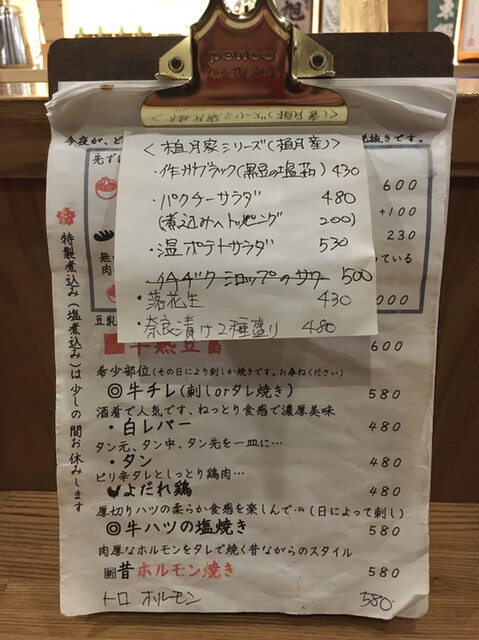 penco
今夜が、ど
抜きです。
＜植月家シリーズ(植月産)＞
・作州ブラック(黒豆の塩茹) 430
・パクチーサラダ 480
(煮込みへトッピング 200)
・温ポテトサラダ 530
イタドリシロップのサワー 500
・落花生 430
・奈良漬け2種盛り 480
先ずは
600
+100
230
無
肉
っている
000
豆乳
600
希少部位(その日により刺しか焼きです。お尋ねください)
◎牛チレ(刺しorタレ焼き) 580
酒肴で人気です、ねっとり食感で濃厚美味
・白レバー 480
タン元、タン中、タン先を一皿に…
・タン 480
ピリ辛タレとしっとり鶏肉…
よだれ鶏 480
厚切りハツの柔らか食感を楽しんで…(日によって刺し)
◎牛ハツの塩焼き 580
肉厚なホルモンをタレで焼く昔ながらのスタイル
新 昔ホルモン焼き 580
トロ ホルモン 580
特製煮込み(塩煮込み)は少しの間お休みします